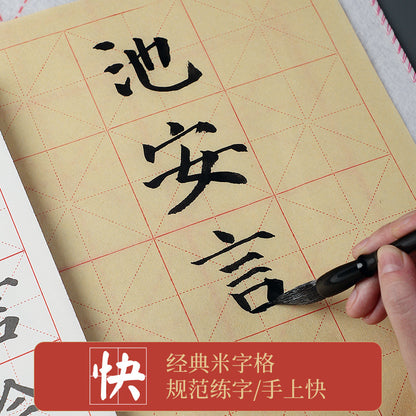 池
安
言
快
经典米字格
规范练字/手上快
言